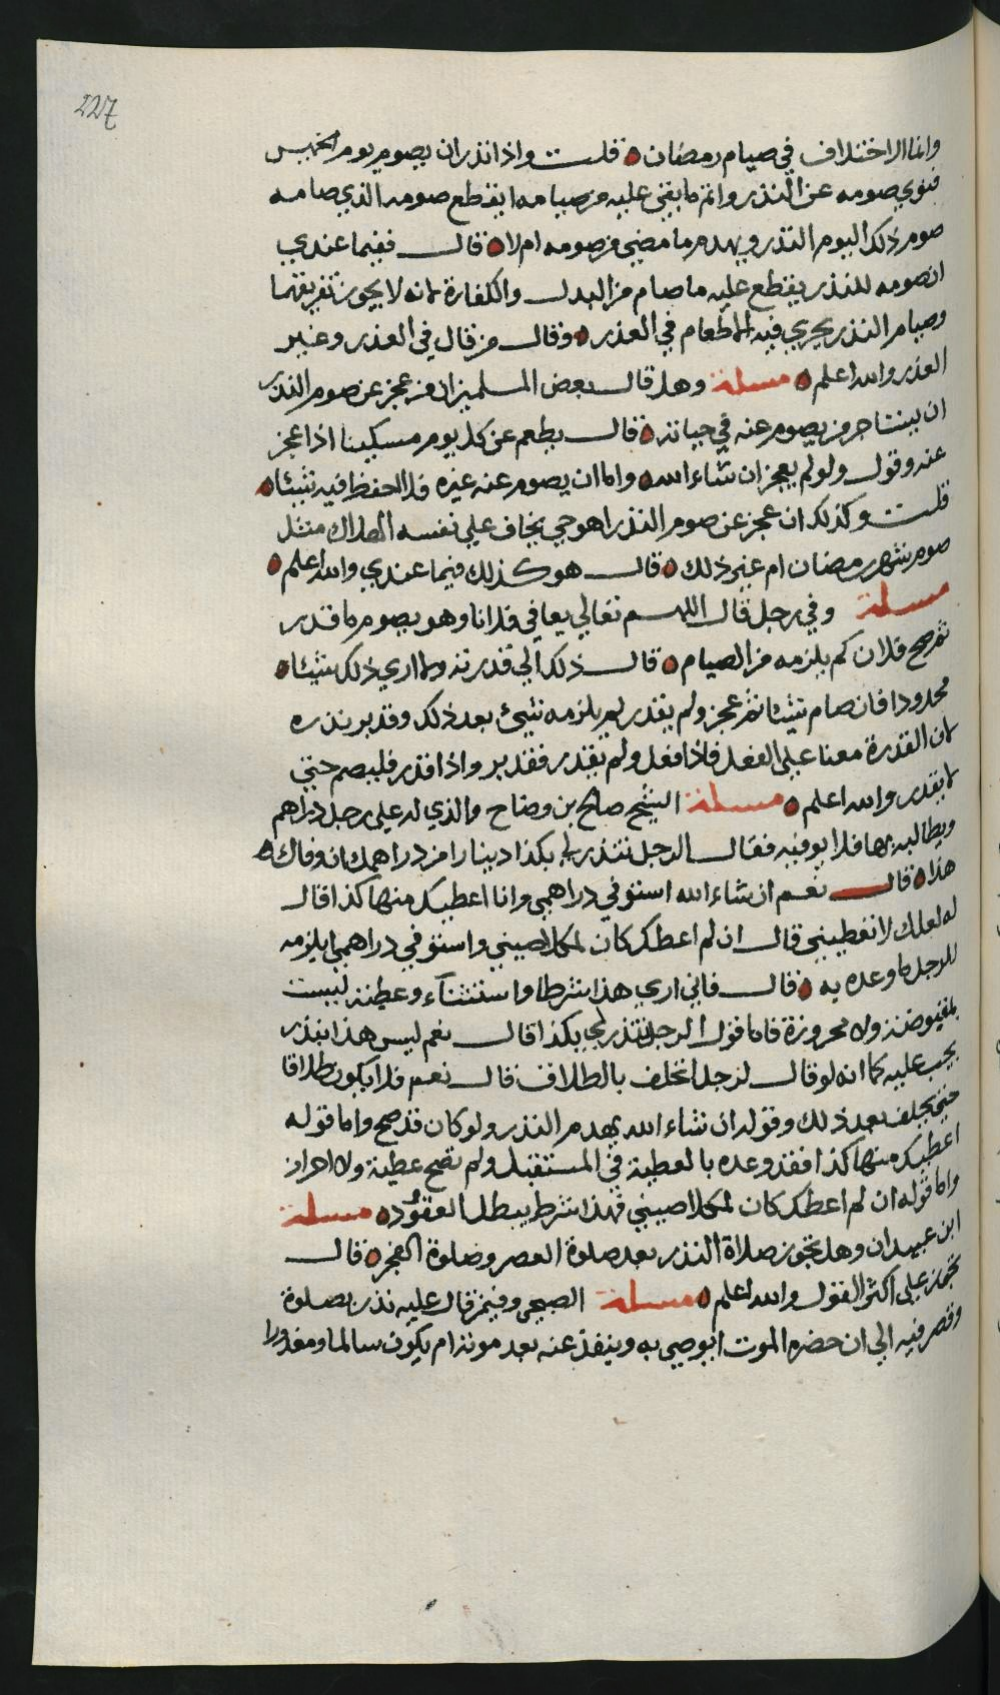 227
وانما الاختلاف في صيام رمضان ه قلت واذا نذر ان يصوم يوم الخميس
فنوي صومه عن النذر واتم ما بقي عليه من صيامه اينقطع صومه الذي صامه
صوم ذلك اليوم النذر ويهدم ما مضي من صومه ام لا ه قال ففيما عندي
ان صومه للنذر يقطع عليه ما صام من البدل والكفارة لانه لا يجوز تفريقهما
وصيام النذر يجري فيه الاطعام في العذر ه وقال من قال في العذر وغير
العذر والله اعلم ه مسلة وهل قال بعض المسلمين ان من عجز عن صوم النذر
ان يستاجر من يصوم عنه في حياته ه قال يطعم عن كل يوم مسكينا اذا عجز
عنه وقول ولو لم يعجز ان شاء الله ه واما ان يصوم عنه غيره فلا احفظ فيه شيئا ه
قلت وكذلك ان عجز عن صوم النذر اهو حي يخاف علي نفسه الهلاك مثل
صوم شهر رمضان ام غير ذلك ه قال هو كذلك فيما عندي والله اعلم ه
مسلة وفي رجل قال اللهم تعالي يعافي فلانا وهو يصوم ما قدر
ثم صح فلان كم يلزمه من الصيام ه قال ذلك الي قدرته وما اري ذلك شيئا ه
محدودا فان صام شيئا ثم عجز ولم يقدر لم يلزمه شيئ بعد ذلك وقد بر بنذره
لان القدرة معنا علي الفعل فاذا فعل ولم يقدر فقد بر واذا قدر فليصم حتي
لا يقدر والله اعلم ه مسلة الشيخ صالح بن وضاح والذي له علي رجل دراهم
ويطالبه بها فلا يوفيه فقال الرجل تنذر لي بكذا دينارا من دراهمك ان وفاك
هذا ه قال نعم ان شاء الله استوفي دراهمي وانا اعطيك منها كذا قال
له لعلك لا تعطيني قال ان لم اعطك كان لك اصيبني واستوفي دراهمي ايلزمه
للرجل ما وعده به ه قال فاني اري هذا شرطا واستثناء وعطية ليست
بمقبوضة ولا محروزة فاما قول الرجل تنذر لي بكذا قال نعم ليس هذا بنذر
يجب عليه كما انه لو قال لرجل اتحلف بالطلاق قال نعم فلا يكون طلاقا
حتي يحلف بعد ذلك وقوله ان شاء الله يهدم النذر ولو كان قد صح واما قوله
اعطيك منها كذا فقد وعده بالعطية في المستقبل ولم تصح عطية ولا احراز
واما قوله ان لم اعطك كان لك اصيبني فهذا شرط يبطل العقود ه مسلة
ابن عبيدان وهل تجوز صلاة النذر بعد صلوة العصر وصلوة الفجر ه قال
تجوز علي اكثر القول والله اعلم ه مسلة الصبحي وفيمن قال عليه نذر بصلوة
وقصر فيه الي ان حضره الموت ايوصي به وينفذ عنه بعد موته ام يكون سالما ومعذورا